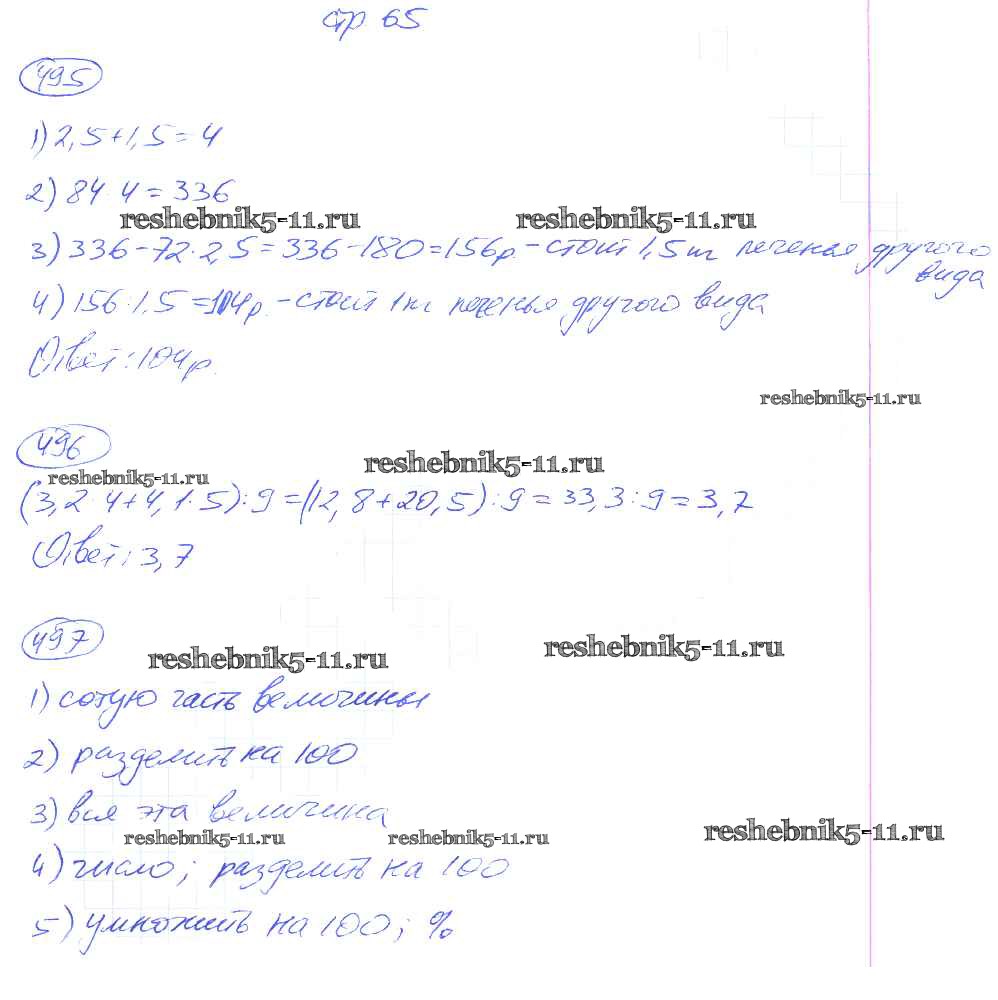 стр 65
495
1) 2,5+1,5=4
2) 84·4=336
reshebnik5-11.ru reshebnik5-11.ru
3) 336-72·2,5=336-180=156р. - стоит 1,5 кг печенья другого
вида
4) 156:1,5=104р. - стоит 1 кг печенья другого вида
Ответ: 104р.
reshebnik5-11.ru
496
reshebnik5-11.ru
reshebnik5-11.ru
(3,2·4+4,1·5):9=(12,8+20,5):9=33,3:9=3,7
Ответ: 3,7
497
reshebnik5-11.ru reshebnik5-11.ru
1) сотую часть величины
2) разделить на 100
3) вся эта величина
reshebnik5-11.ru reshebnik5-11.ru reshebnik5-11.ru
4) число; разделить на 100
5) умножить на 100; %